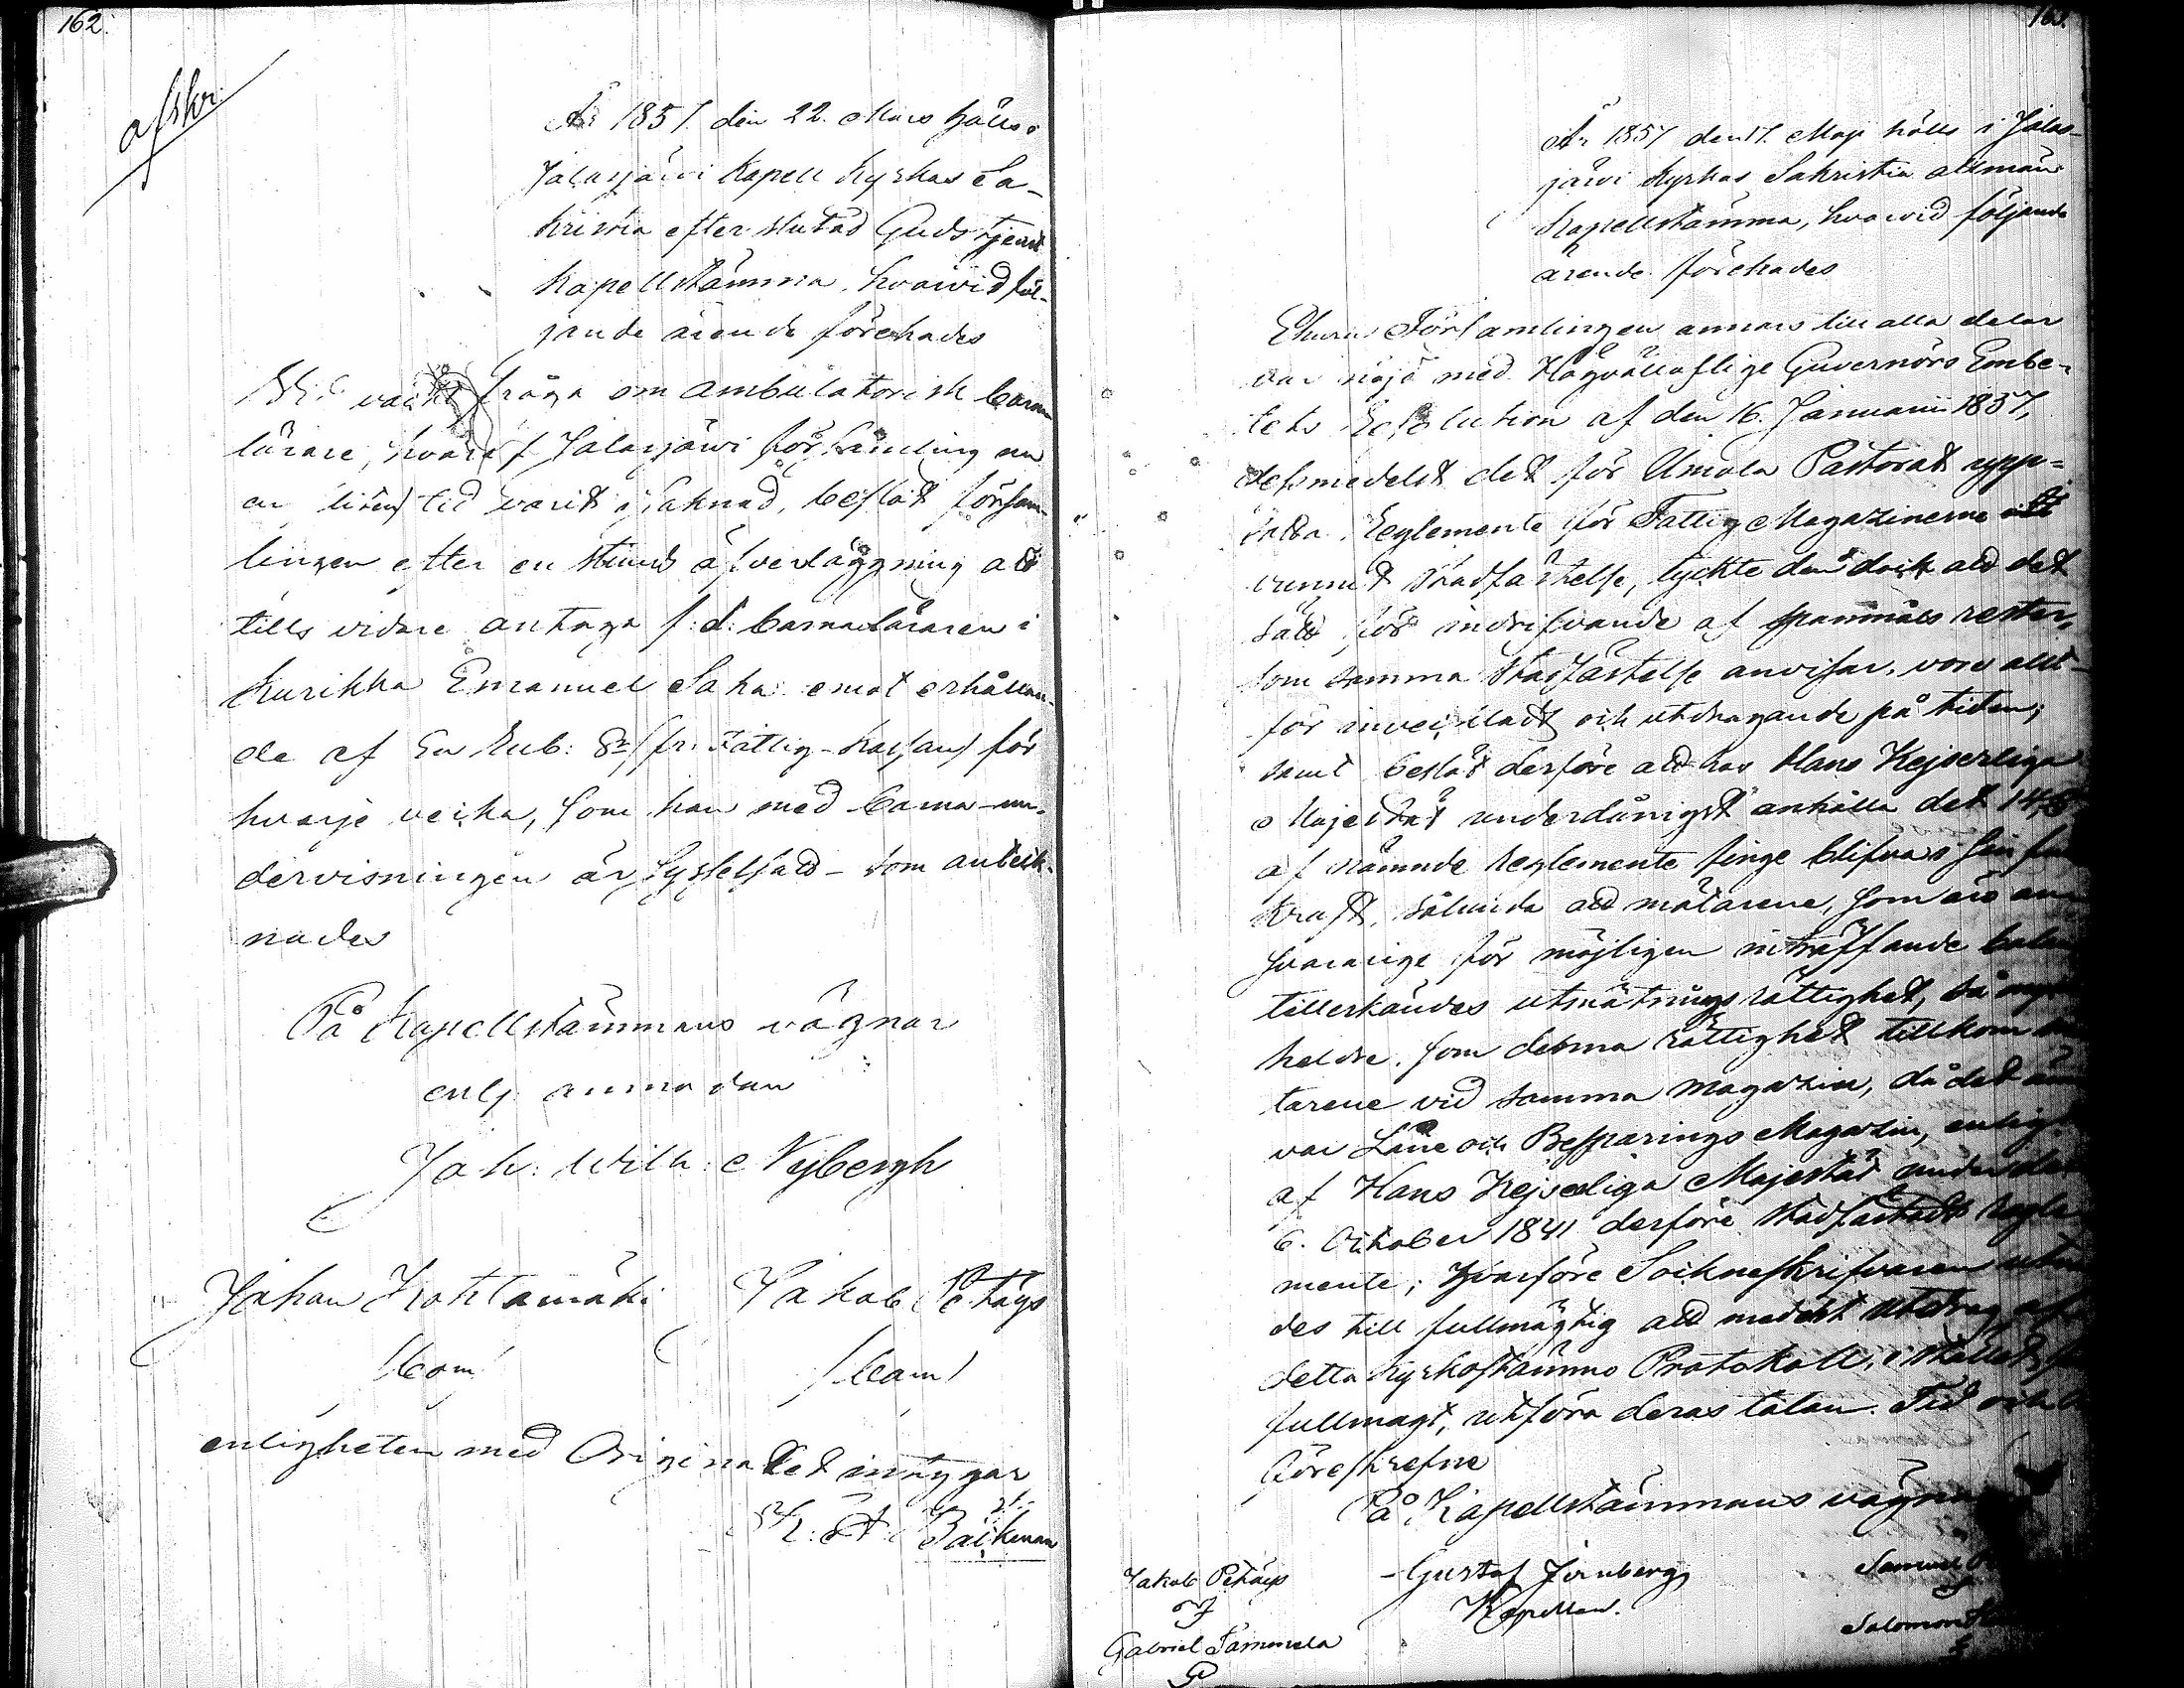 162.
afskr.
År 1857. den 22. Mars hölls i
Jalasjärvi Kapell Kyrkas Sa-
kristia efter slutad Gudstjenst
Kapellstämma, hvarvid föl-
jande ärende förehades
fråga om ambulatorisk barna
lärare, hvaraf Jalasjärvi församling nu
en liten tid varit i saknad, beslöt försam-
lingen efter en stunds öfverläggning att
tills vidare antaga f: d: barnaläraren i
Kurikka Emanuel Saha emot erhållan-
de af En Rub: Sr (fr. Fattig-kassan) för
hvarje vecka, som han med barna-un-
dervisningen är sysselsatt - som anteck-
nades
På Kapellstämmans vägnar
enl. anmodan
Joh: Wilh: Nybergh
Johan Kohtamäki Jakob Petäys
enligheten med Originalet intygar
K: A: Bäckman
163.
År 1857 den 17. Maji hölls i Jalas-
järvi Kyrkas Sakristia allmän
Kapellstämma, hvarvid följande
ärende förehades
Ehuru Församlingen annars till alla delar
var nöjd med Högvälloflige Guvernörs Embe-
tets Resolution af den 16. Januarii 1857,
dessmedelst det för Ilmola Pastorat upp-
satta Reglemente för Fattig Magazinerne
vunnit stadfästelse, tyckte den dock att det
sätt för indrifvande af spannmåls rester,
som samma stadfästelse anvisar, vore allt-
för inveckladt och utdragande på tiden;
samt beslöt derföre att hos Hans Kejserliga
Majestät underdånigst anhålla det 14,§
af nämnde reglemente finge blifva i sin
kraft, sålunda att mätarene, som äro an-
svarige för möjligen inträffande
tillerkändes utmätningsrättighet, så
heldre, som denna rättighet tillkom
tarene vid samma magazin, då det
var Låne och Besparings Magazin, enligt
af Hans Kejserliga Majestät under den
6. October 1841 derföre stadfästadt Regle-
mente; Hvarföre Sockneskrifvaren
des till fullmägtig att medelst utdrag af
detta Kyrkostämmo Protokoll, i stället
fullmagt, utföra deras talan. Tid och
föreskrefne
På Kapellstämmans vägnar
Jakob Petäys Gustaf Jernberg Samuel
Kapellan.
Gabriel Tammela Salomon